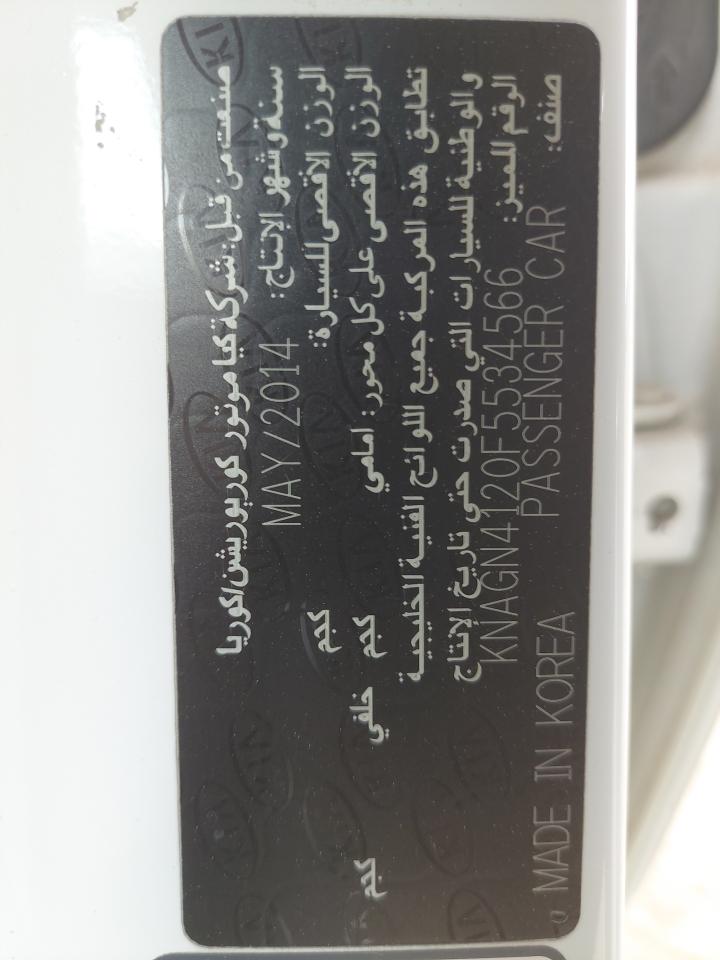 صنعت من قبل: شركة كيا موتور كوربوريشن/كوريا
سنة و شهر الإنتاج: MAY/2014
الوزن الاقصى للسيارة: كجم
الوزن الاقصى على كل محور: امامي كجم خلفي كجم
تطابق هذه المركبة جميع اللوائح الفنية الخليجية
والوطنية للسيارات التي صدرت حتى تاريخ الإنتاج
الرقم المميز: KNAGN4120F5534566
صنف: PASSENGER CAR MADE IN KOREA